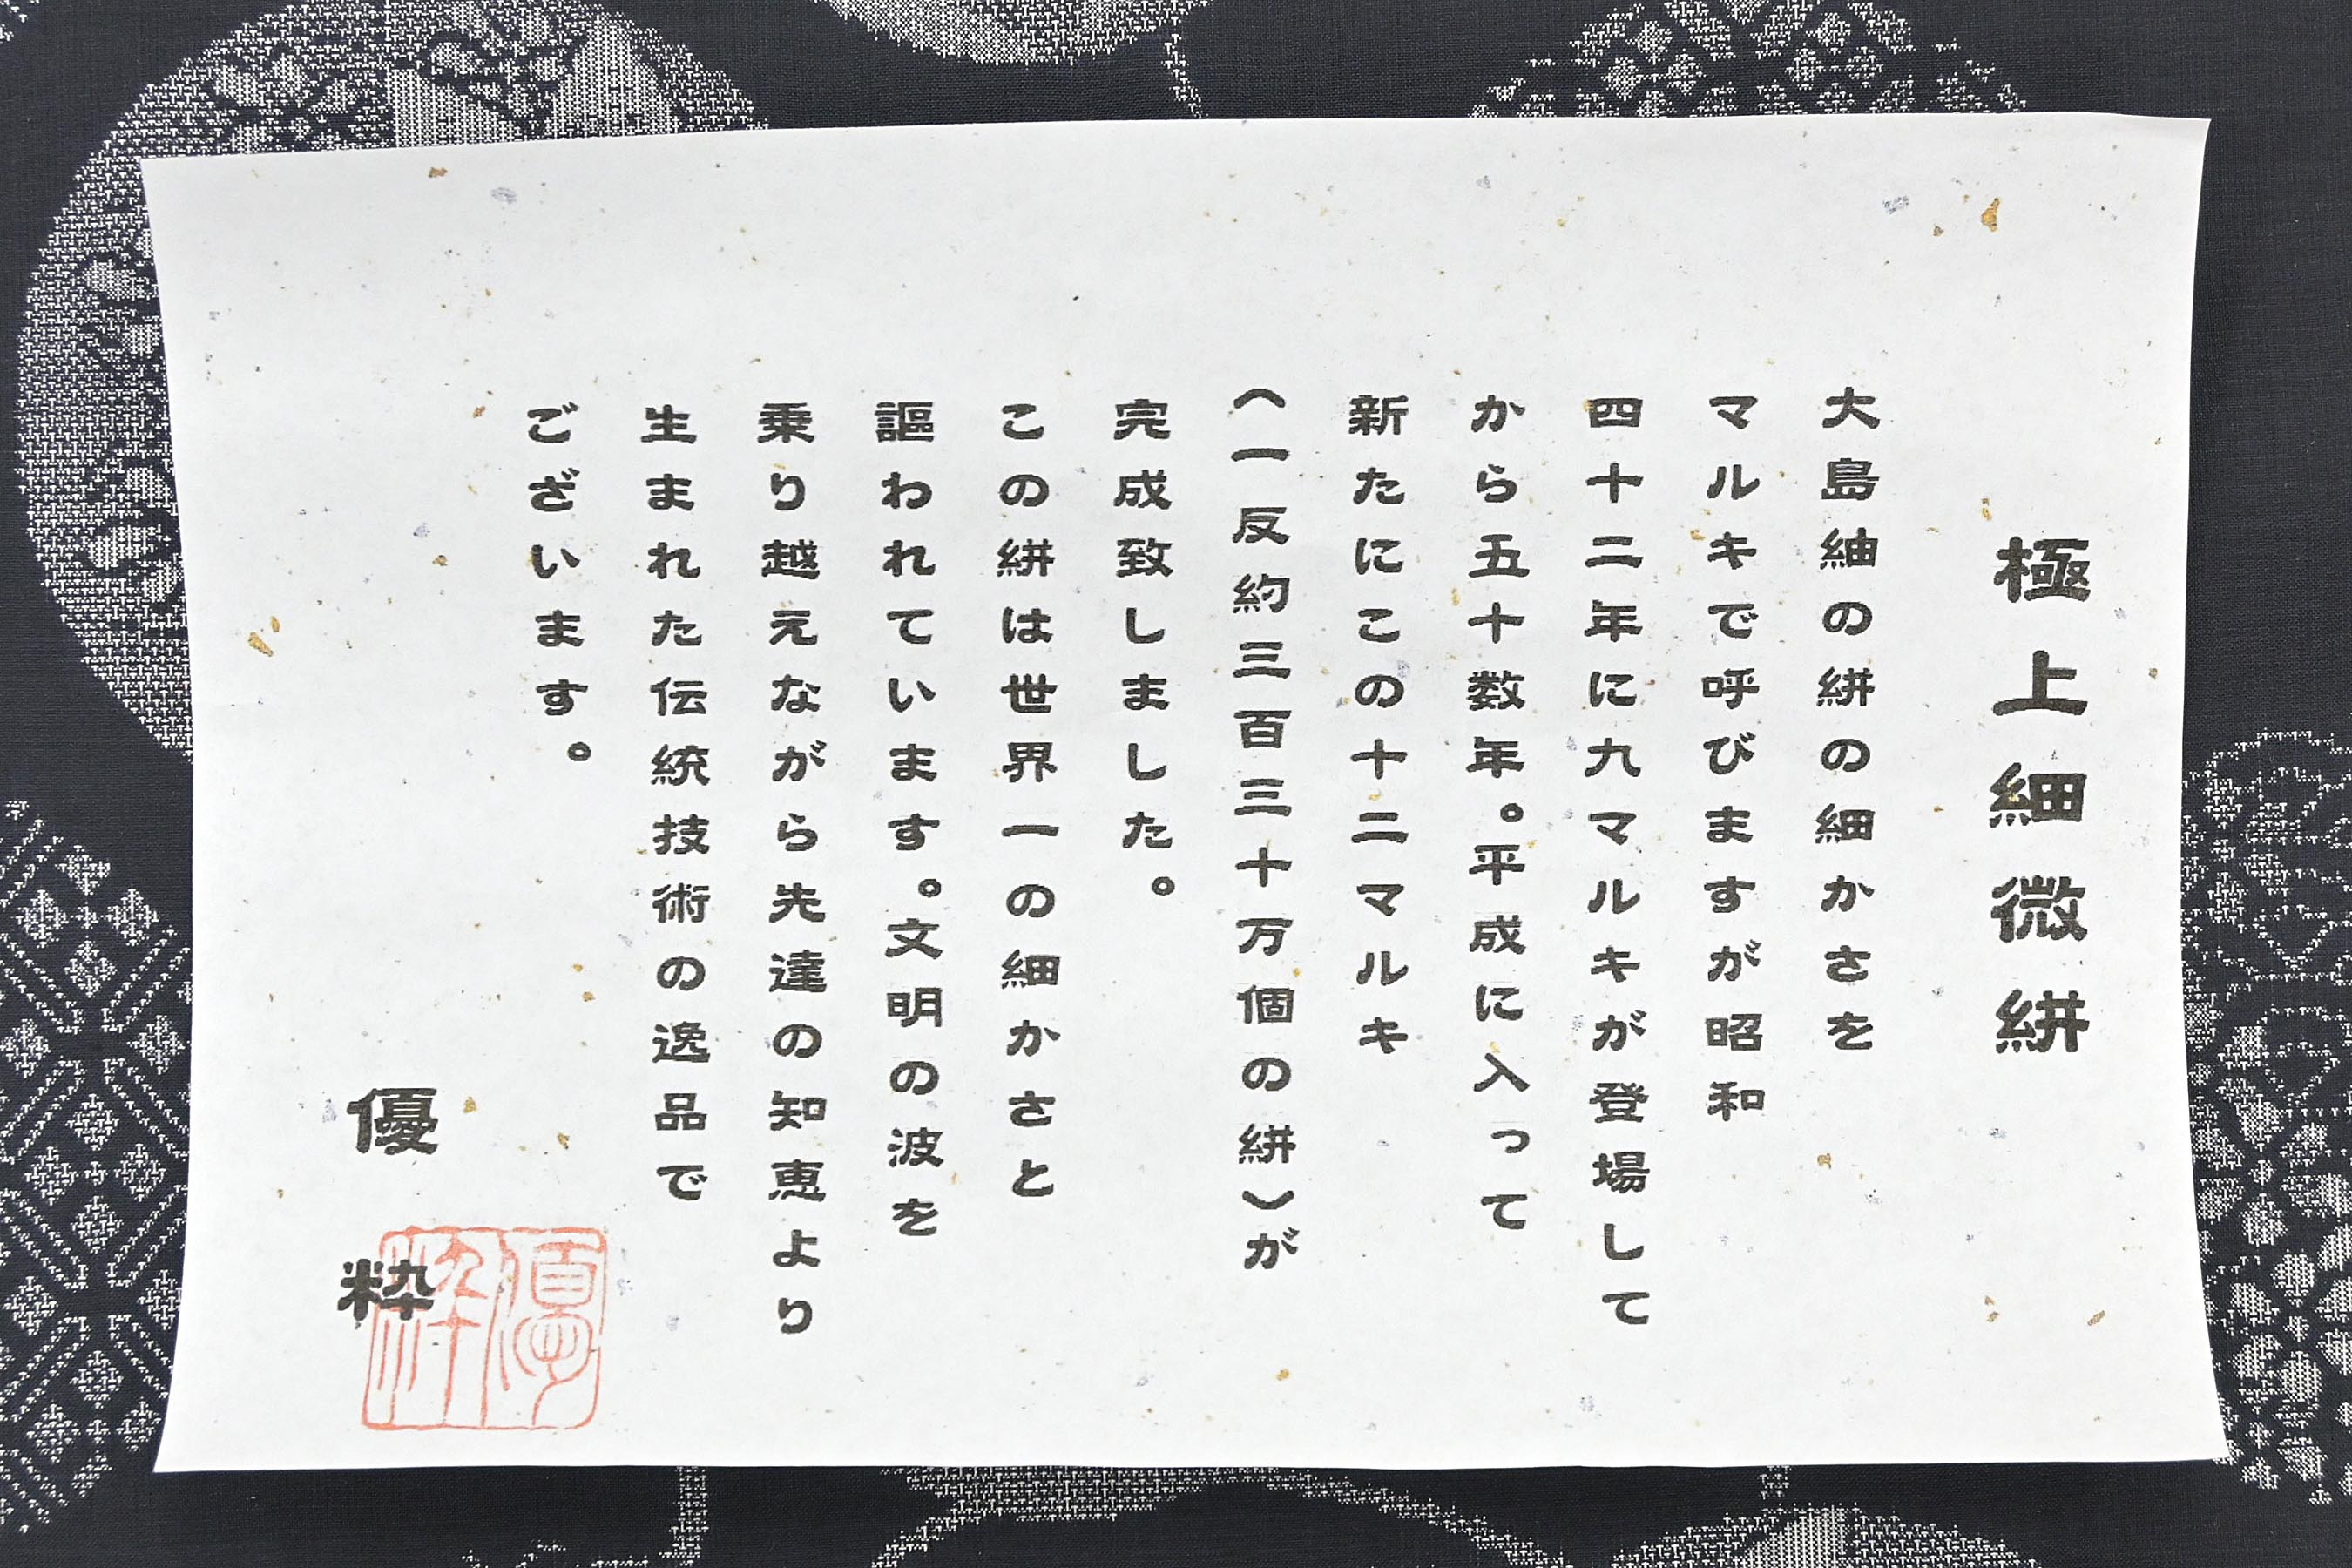 極上細微絣
大島紬の絣の細かさを
マルキで呼びますが昭和
四十二年に九マルキが登場して
から五十数年。平成に入って
新たにこの十二マルキ
(一反約三百三十万個の絣)が
完成致しました。
この絣は世界一の細かさと
謳われています。文明の波を
乗り越えながら先達の知恵より
生まれた伝統技術の逸品で
ございます。
優粋
優
粋